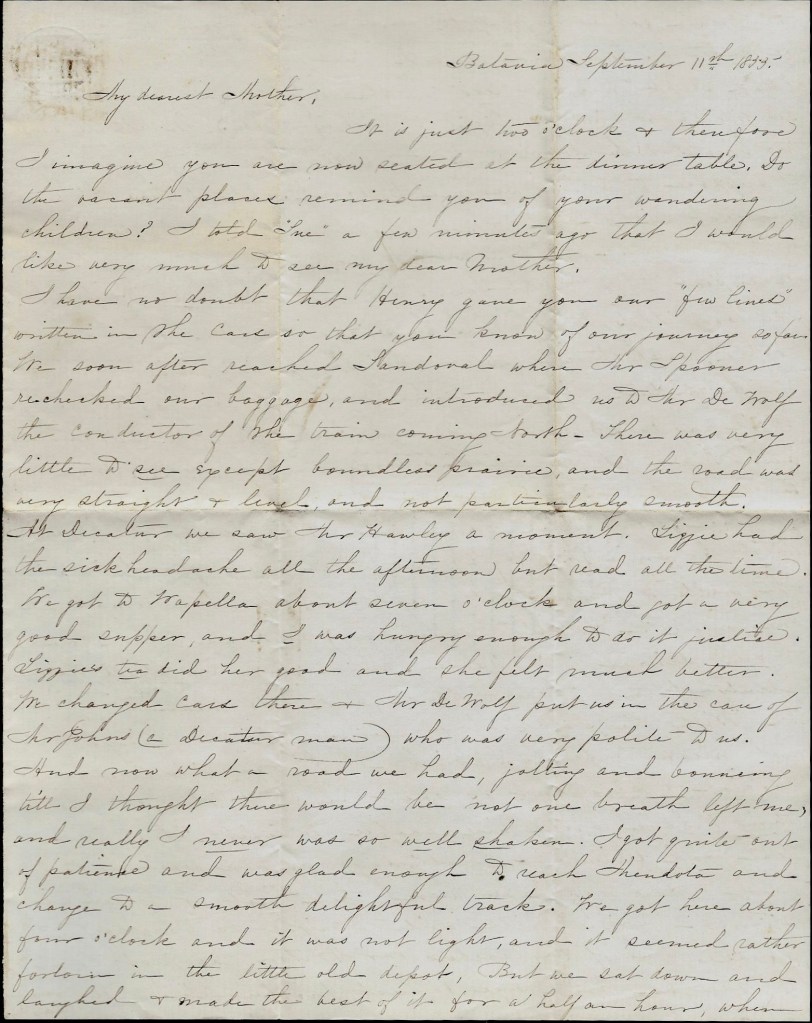 Batavia September 11th 1855.
My dearest Mother,
It is just two o'clock & therefore
I imagine you are now seated at the dinner table. Do
the vacant places remind you of your wandering
children? I told "Sue" a few minutes ago that I would
like very much to see my dear Mother.
I have no doubt that Henry gave you our "few lines"
written in the Cars so that you know of our journey so far
We soon after reached Sandoval where Mr Spooner
rechecked our baggage, and introduced us to Mr De Wolf
the conductor of the train coming North - There was very
little to see except boundless prairie, and the road was
very straight & level, and not particularly smooth.
At Decatur we saw Mr Hawley a moment. Lizzie had
the sick headache all the afternoon but read all the time.
We got to Wapella about seven o'clock and got a very
good supper, and I was hungry enough to do it justice.
Lizzie's tea did her good and she felt much better.
We changed cars there & Mr De Wolf put us in the care of
Mr Johns (a Decatur man) who was very polite to us.
And now what a road we had, jolting and bouncing
till I thought there would be not one breath left me,
and really I never was so well shaken. I got quite out
of patience and was glad enough to reach Mendota and
change to a smooth delightful track. We got here about
four o'clock and it was not light, and it seemed rather
forlorn in the little old depot, But we sat down and
laughed & made the best of it for a half an hour, when